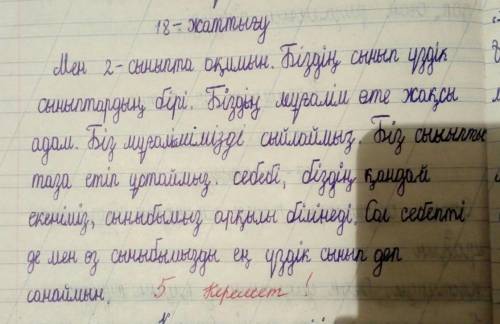 18-жаттығу
Мен 2-сыныпта оқимын. Біздің сынып үздік
сыныптардың бірі. Біздің мұғалім өте жақсы
адам. Біз мұғалімімізде сыйлаймыз. Біз сыныпты
таза етіп ұстаймыз. себебі, біздің қандай
екеніміз, сыныбымыз арқылы білінеді. Сол себепті
де мен өз сыныбымызды ең үздік сынып деп
санаймын. 5 Керемет!